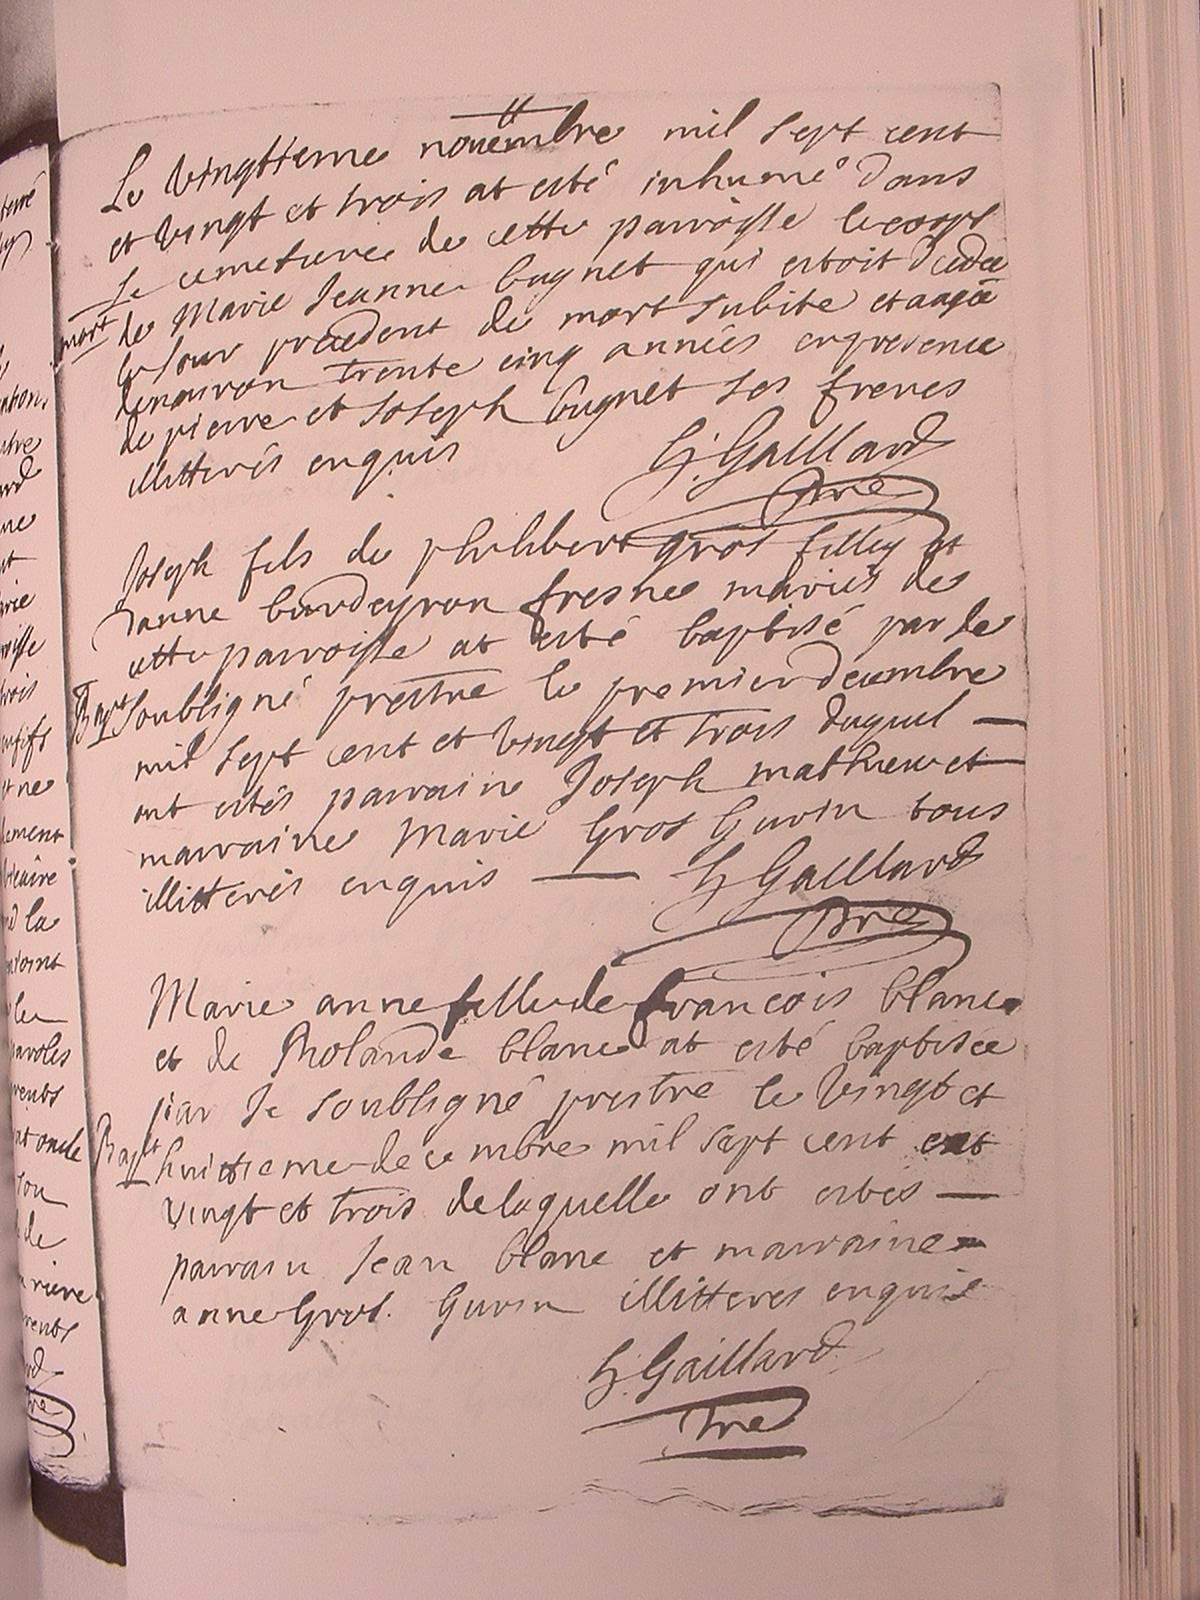 Le vingttieme nouembre mil sept cent
et vingt et trois at esté inhumé dans
le cemetiere de cette parroisse le corps
mort de Marie Jeanne bugnet qui estoit decedee
le Jour precedent de mort subite et aagée
denuiron trente cinq années en presence
de pierre et Joseph bugnet ses freres
illitterés enquis G. Gaillard
pre
Joseph fils de philibert gros filley et
Janne burdeyron fresne mariés de
cette parroisse at esté baptisé par Je
Bapt soubsigné prestre le premier decembre
mil sept cent et vingt et trois duquel
ont estés parrain Joseph mathieu et
marraine Marie Gros Gurin tous
illitterés enquis G Gaillard
pre
Marie anne fille de françois blanc
et de Rolande blanc at esté baptisee
par Je soubsigné prestre le vingt et
Bapt huictieme decembre mil sept cent et
vingt et trois de laquelle ont estés
parrain Jean blanc et marraine
anne Gros. Gurin illitteres enquis
G. Gaillard
pre
terré
tre
ne
arie
oisse
trois
et ne
la
le
paroles
oncle
de